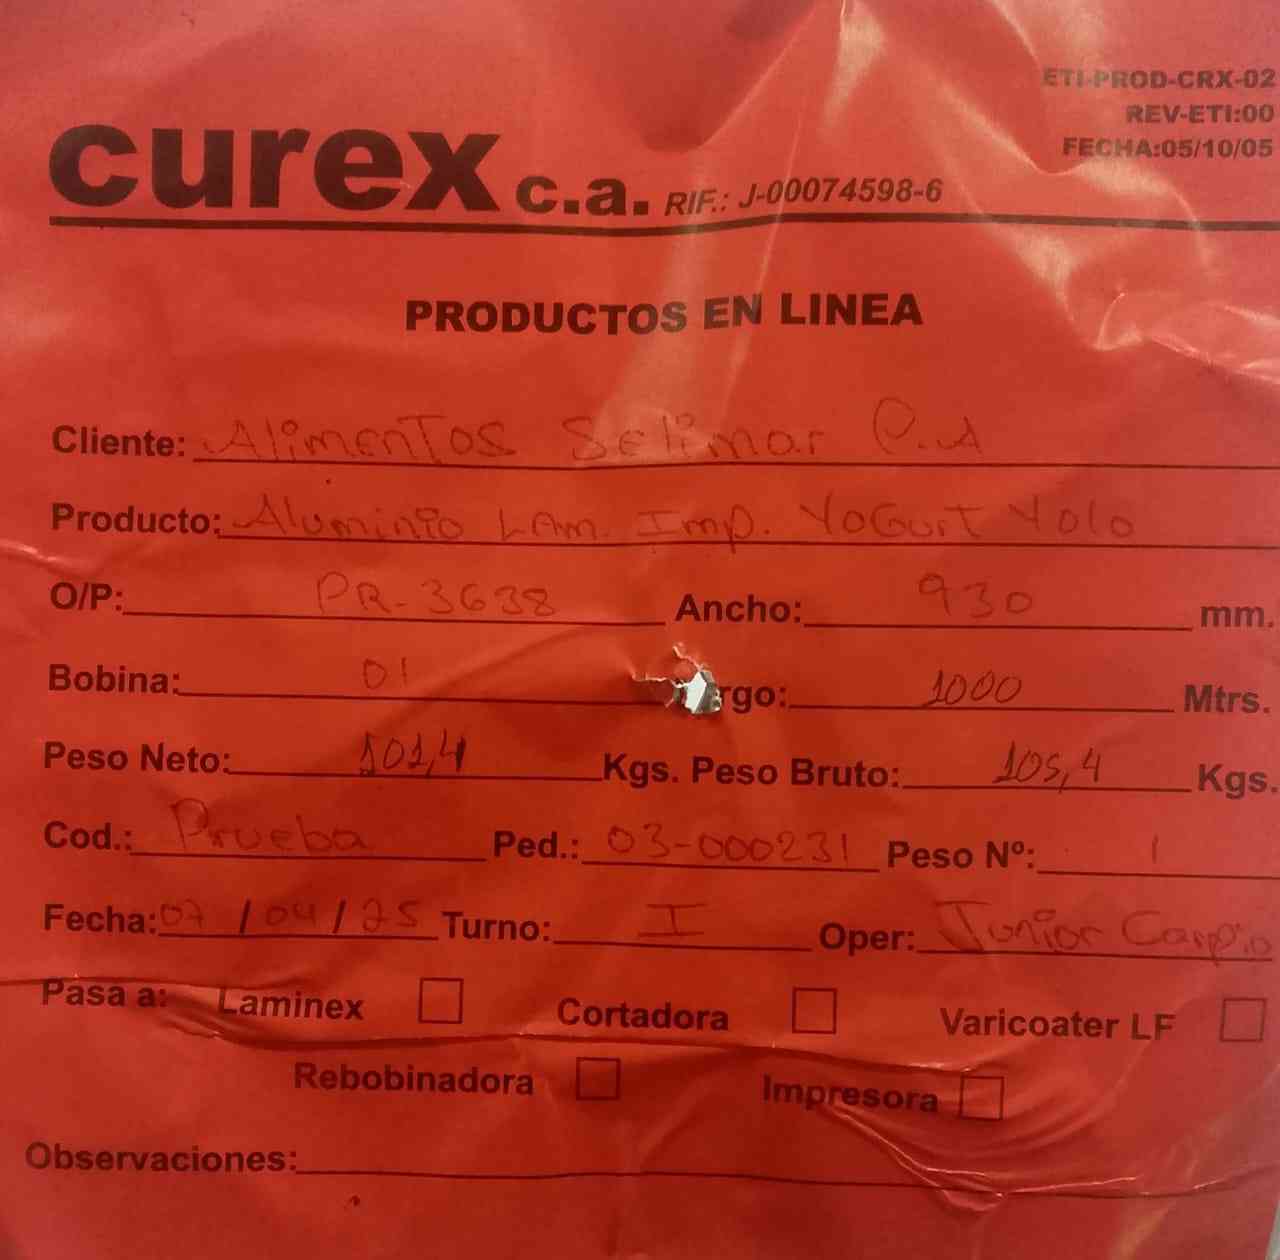 ETI-PROD-CRX-02
REV-ETI:00
FECHA:05/10/05
curex c.a. RIF.: J-00074598-6
PRODUCTOS EN LINEA
Cliente: Alimentos Selimar C.A
Producto: Aluminio Lam. Imp. Yogurt Yolo
O/P: PR-3638 Ancho: 930 mm.
Bobina: 01 rgo: 1000 Mtrs.
Peso Neto: 101,4 Kgs. Peso Bruto: 105,4 Kgs.
Cod.: Prueba Ped.: 03-000231 Peso Nº: 1
Fecha: 07/04/25 Turno: I Oper: Junior Carpio
Pasa a: Laminex Cortadora Varicoater LF
Rebobinadora Impresora
Observaciones: